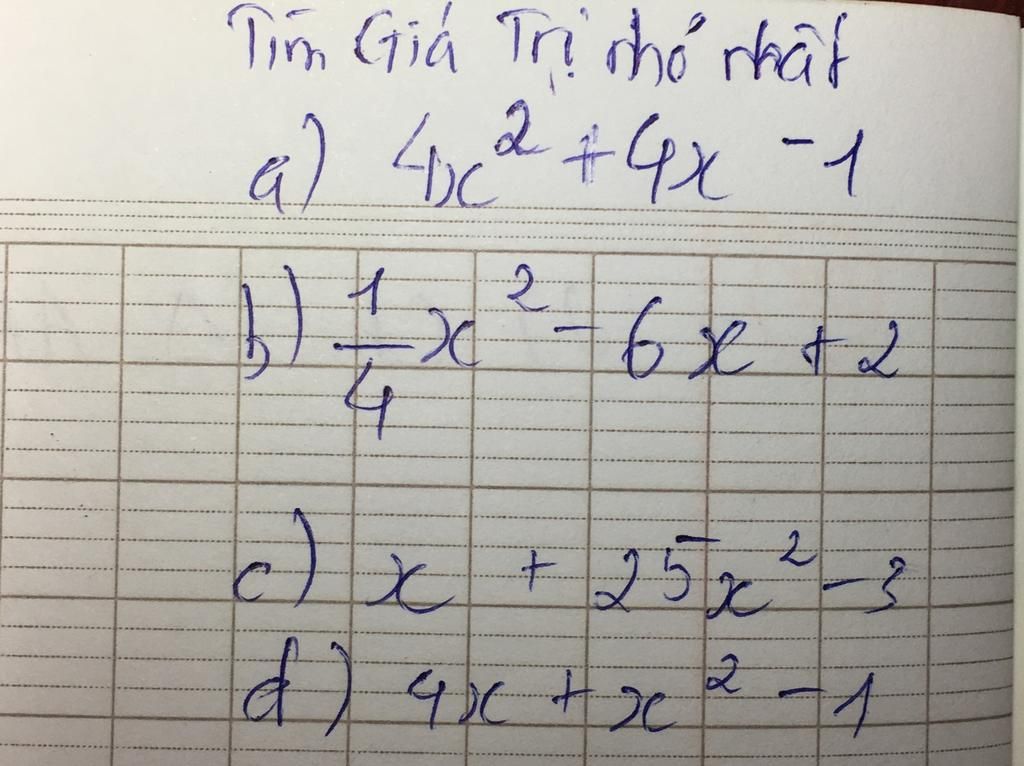 Tìm Giá Trị nhỏ nhất
a) 4x² + 4x - 1
b) 1/4 x² - 6x + 2
c) x + 25x² - 3
d) 4x + x² - 1